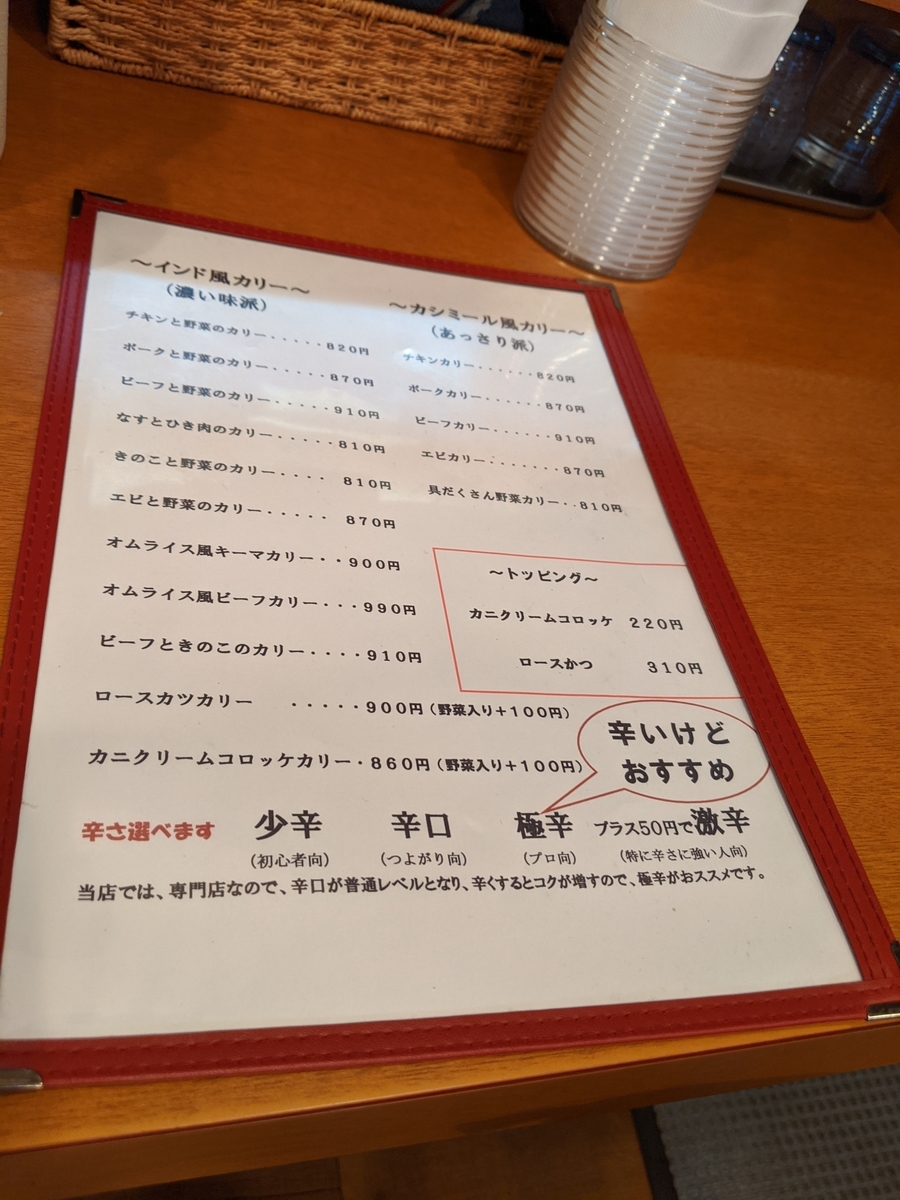 ～インド風カリー～
（濃い味派）
チキンと野菜のカリー・・・・・820円
ポークと野菜のカリー・・・・・870円
ビーフと野菜のカリー・・・・・910円
なすとひき肉のカリー・・・・・810円
きのこと野菜のカリー・・・・ 810円
エビと野菜のカリー・・・・・ 870円
オムライス風キーマカリー・・900円
オムライス風ビーフカリー・・・990円
ビーフときのこのカリー・・・・910円
ロースカツカリー ・・・・・900円（野菜入り＋100円）
カニクリームコロッケカリー・860円（野菜入り＋100円）
～カシミール風カリー～
（あっさり派）
チキンカリー・・・・・・820円
ポークカリー・・・・・・870円
ビーフカリー・・・・・・910円
エビカリー・・・・・・・870円
具だくさん野菜カリー・・810円
～トッピング～
カニクリームコロッケ 220円
ロースかつ 310円
辛いけど
おすすめ
辛さ選べます 少辛 辛口 極辛 プラス50円で激辛
（初心者向） （つよがり向） （プロ向） （特に辛さに強い人向）
当店では、専門店なので、辛口が普通レベルとなり、辛くするとコクが増すので、極辛がおススメです。